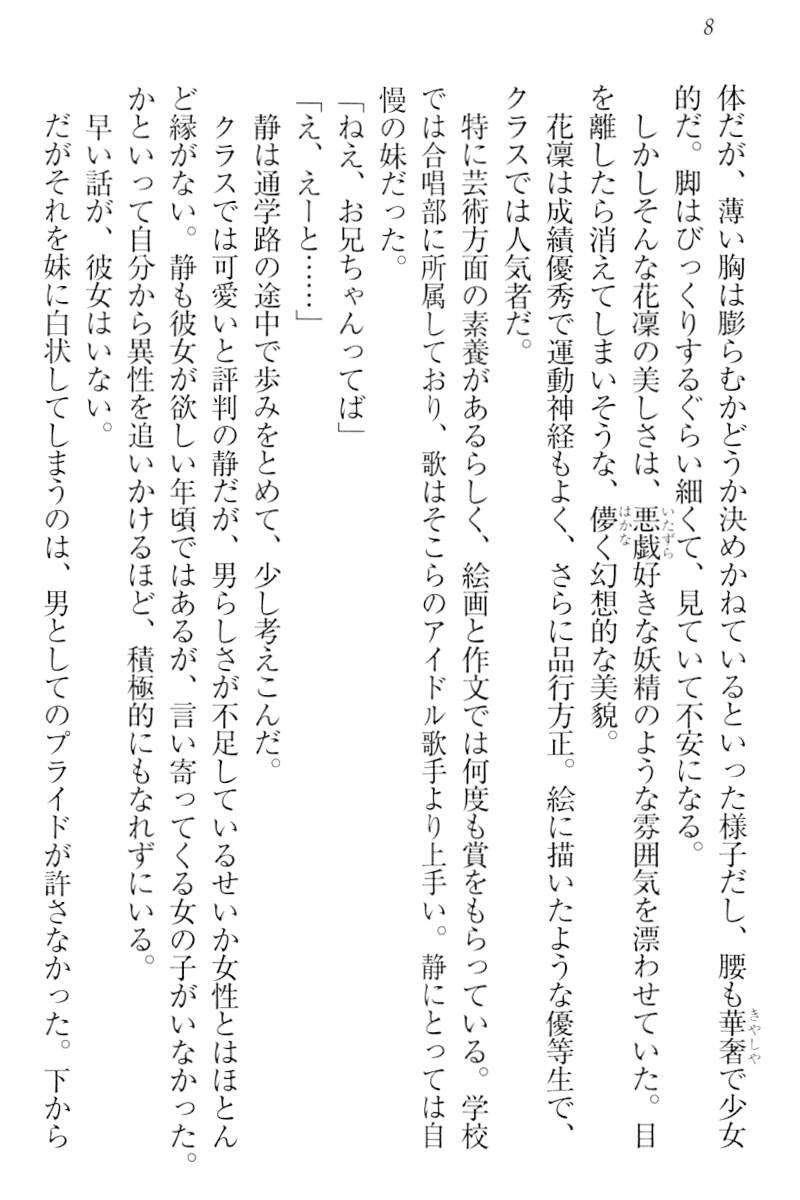 8
体だが、薄い胸は膨らむかどうか決めかねているといった様子だし、腰も華奢で少女
的だ。脚はびっくりするぐらい細くて、見ていて不安になる。
　しかしそんな花凜の美しさは、悪戯好きな妖精のような雰囲気を漂わせていた。目
を離したら消えてしまいそうな、儚く幻想的な美貌。
　花凜は成績優秀で運動神経もよく、さらに品行方正。絵に描いたような優等生で、
クラスでは人気者だ。
　特に芸術方面の素養があるらしく、絵画と作文では何度も賞をもらっている。学校
では合唱部に所属しており、歌はそこらのアイドル歌手より上手い。静にとっては自
慢の妹だった。
「ねえ、お兄ちゃんってば」
「え、えーと……」
　静は通学路の途中で歩みをとめて、少し考えこんだ。
　クラスでは可愛いと評判の静だが、男らしさが不足しているせいか女性とはほとん
ど縁がない。静も彼女が欲しい年頃ではあるが、言い寄ってくる女の子がいなかった。
かといって自分から異性を追いかけるほど、積極的にもなれずにいる。
　早い話が、彼女はいない。
　だがそれを妹に白状してしまうのは、男としてのプライドが許さなかった。下から